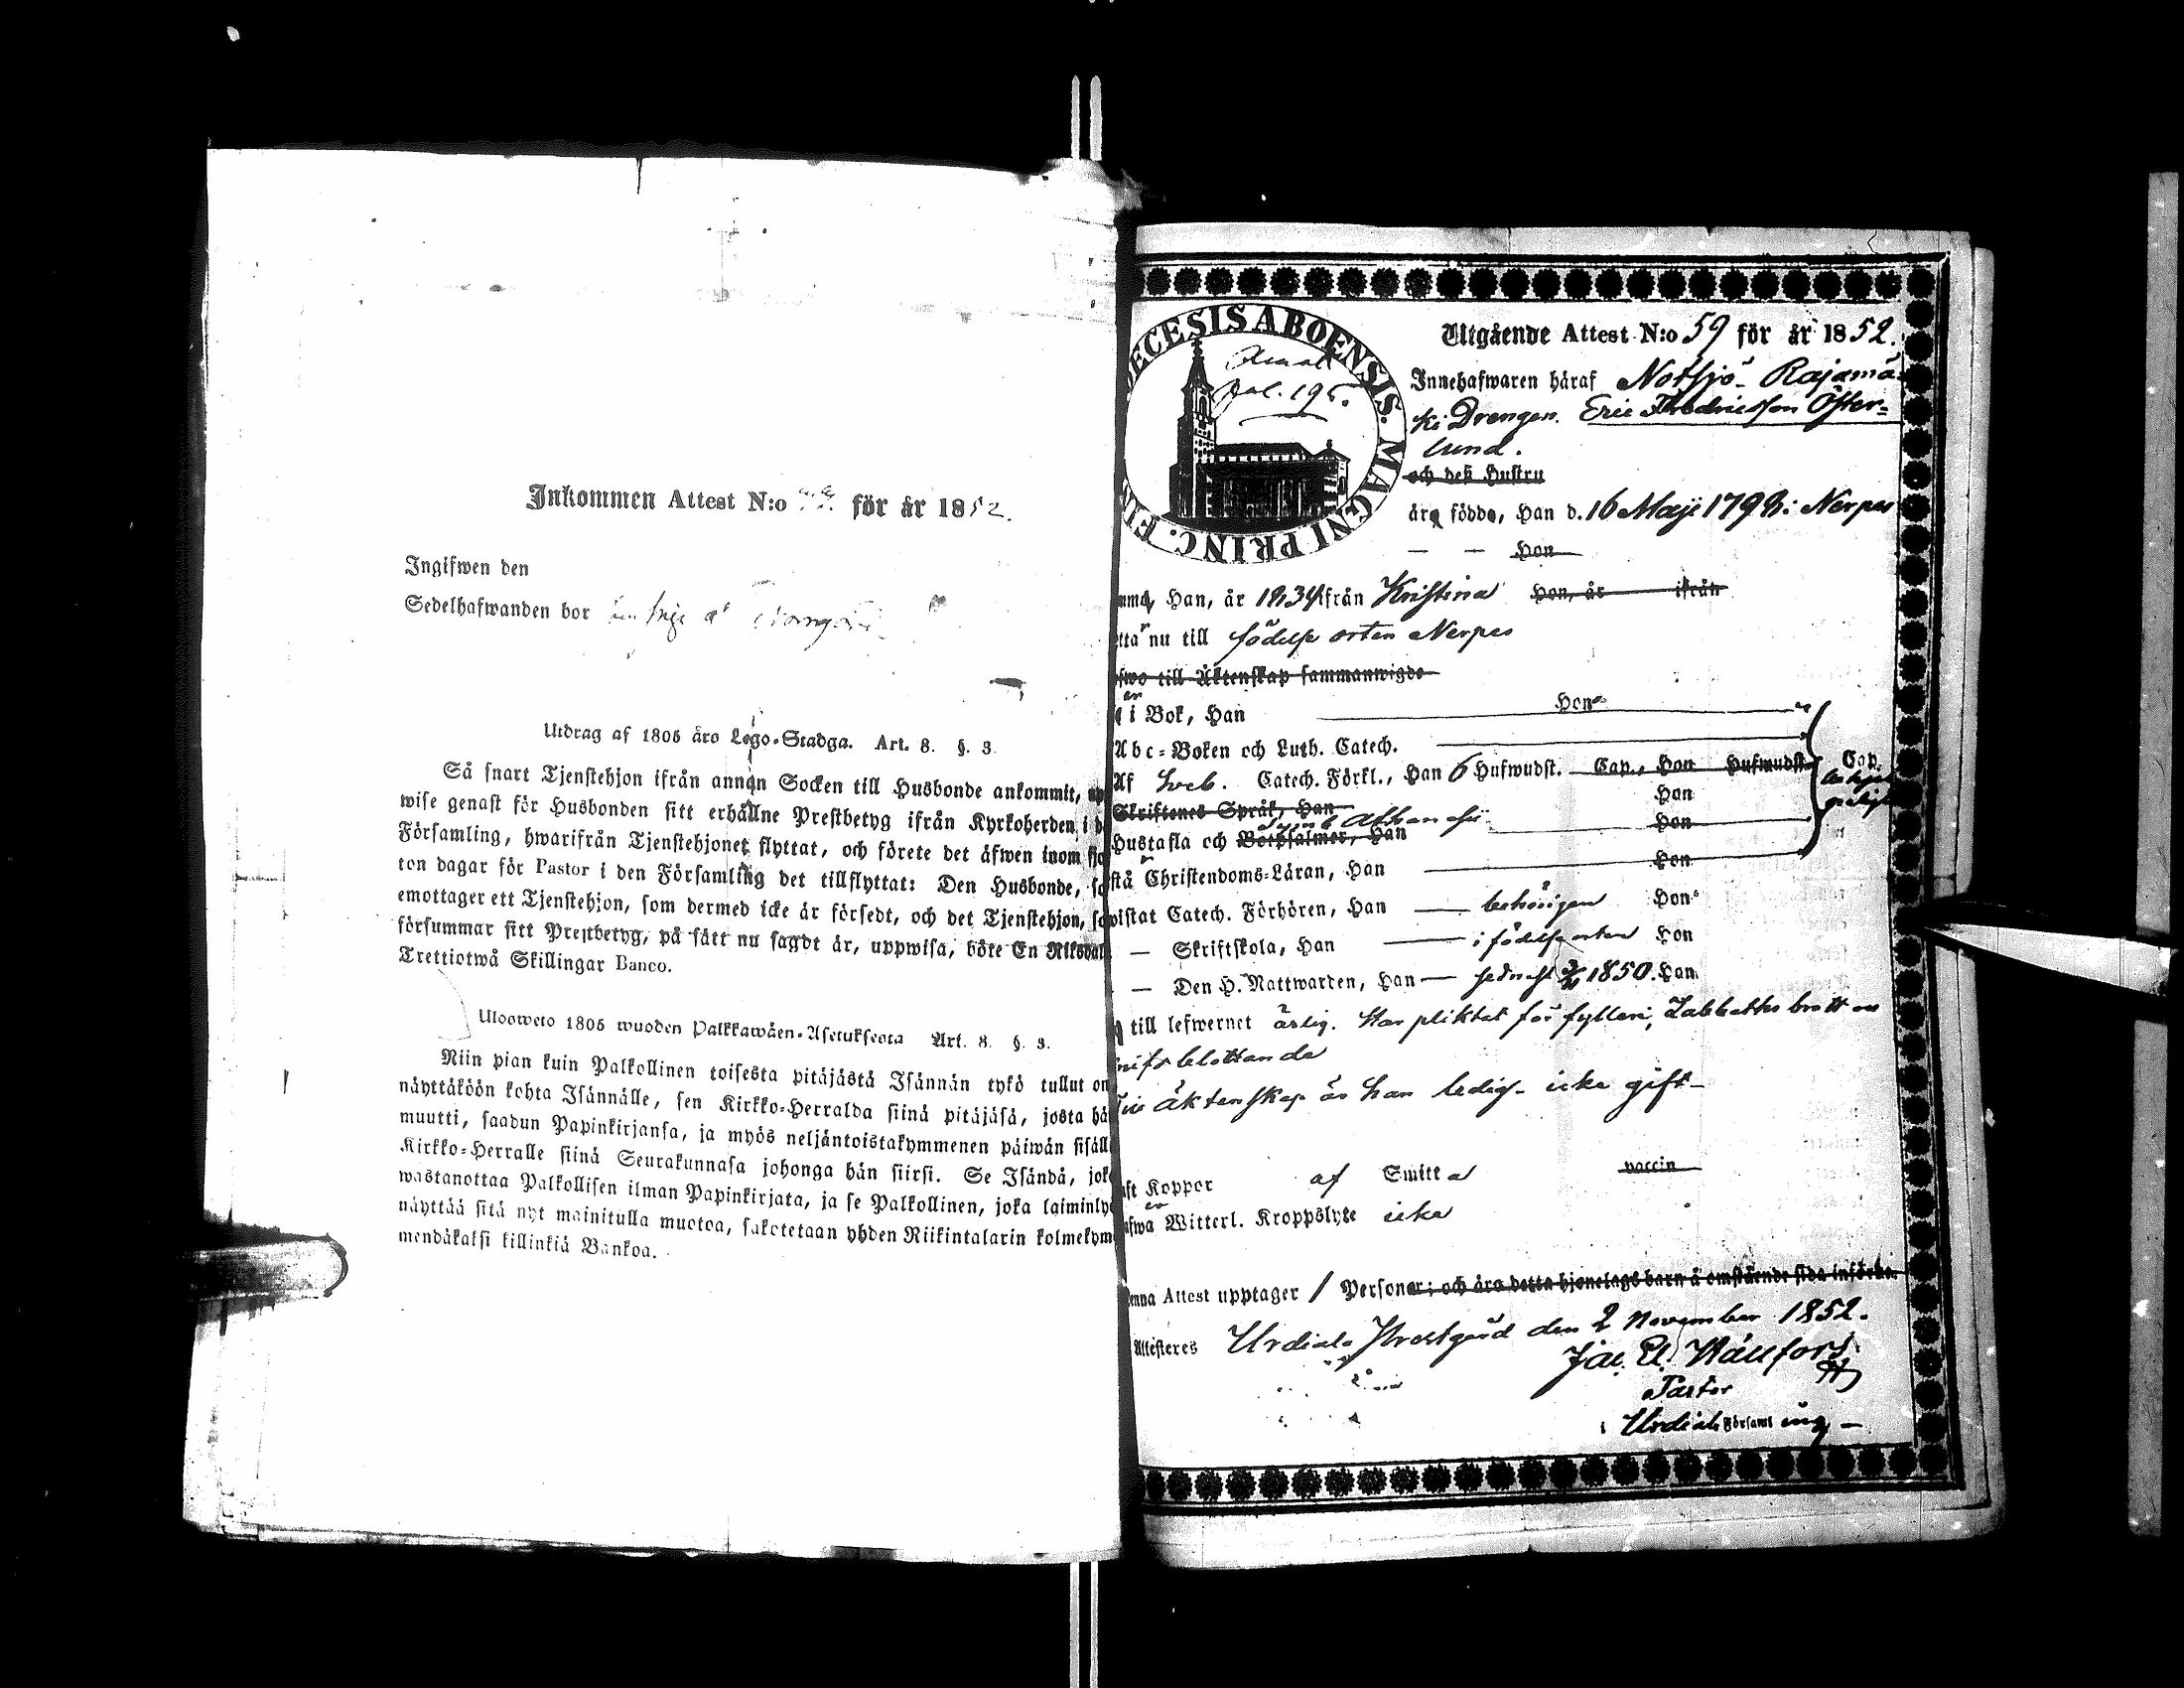 Inkommen Attest N:o för år 1852.
Ingifwen den
Sedelhafwanden bor
Utdrag af 1805 års Lego-Stadga. Art. 8. §. 3.
Så snart Tjenstehjon ifrån annan Socken till Husbonde ankommit,
wise genast för Husbonden sitt erhållne Prestbetyg ifrån Kyrkoherden i
Församling, hwarifrån Tjenstehjonet flyttat, och förete det äfwen inom
ton dagar för Pastor i den Församling det tillflyttat: Den Husbonde,
emottager ett Tjenstehjon, som dermed icke är försedt, och det Tjenstehjon,
försummar sitt Prestbetyg, på sätt nu sagdt är, uppwisa, böte En Riksdal
Trettiotwå Skillingar Banco.
Ulosweto 1805 wuoden Palkkawäen-Asetuksesta Art. 8. §. 3.
Niin pian kuin Palkollinen toisesta pitäjästä Isännän tykö tullut on
näyttäköön kohta Isännälle, sen Kirkko-Herralda siinä pitäjäsä, josta hä
muutti, saadun Papinkirjansa, ja myös neljäntoistakymmenen päiwän sisäll
Kirkko-Herralle siinä Seurakunnasa johonga hän siirsi. Se Isändä, jok
wastanottaa Palkollisen ilman Papinkirjata, ja se Palkollinen, joka laiminly
näyttää sitä nyt mainitulla muotoa, saketetaan yhden Riikintalarin kolmekym
mendäkaksi killinkiä Bankoa.
DIECESIS ABOENSIS. MAGNI PRINC. FIN
pal. 195.
Utgående Attest N:o 59 för år 1852.
Innehafwaren häraf Notsjö- Rajamä-
ki Drengen. Eric Fredricsson Öster=
lund.
och dess Hustru
äro födde, Han d. 16 Maji 1798 i Nerpes
— — Hon
Han, är 1834 ifrån Kristina Hon, år ifrån
nu till födelse orten Nerpes
till Äktenskap sammanwigde
i Bok, Han Hon
Abc-Boken och Luth. Catech.
Af Catech. Förkl., Han 6 Hufwudst. Cap., Han Hufwudst. Cap.
Skriftenes Språk, Han Hon
Symb Athanasii
Hustafla och Botpsalmer, Han Hon
Christendoms-Läran, Han Hon
wistat Catech. Förhören, Han behörigen Hon
— Skriftskola, Han i födelse orten Hon
— Den H. Nattwarden, Han sednast 1850. Hon
till lefwernet ärlig. Har pliktat för fylleri, Sabbaths brott o
blottande
äktenskap är han ledig- icke gift-
Koppor af Smitta vaccin
Witterl. Kroppslyte icke
Attest upptager 1 Personer; och äro detta hjonelags barn å omstående sida införda.
Attesteres Urdiala Prestgård den 2 November 1852.
Pastor
i Urdiala Församling —